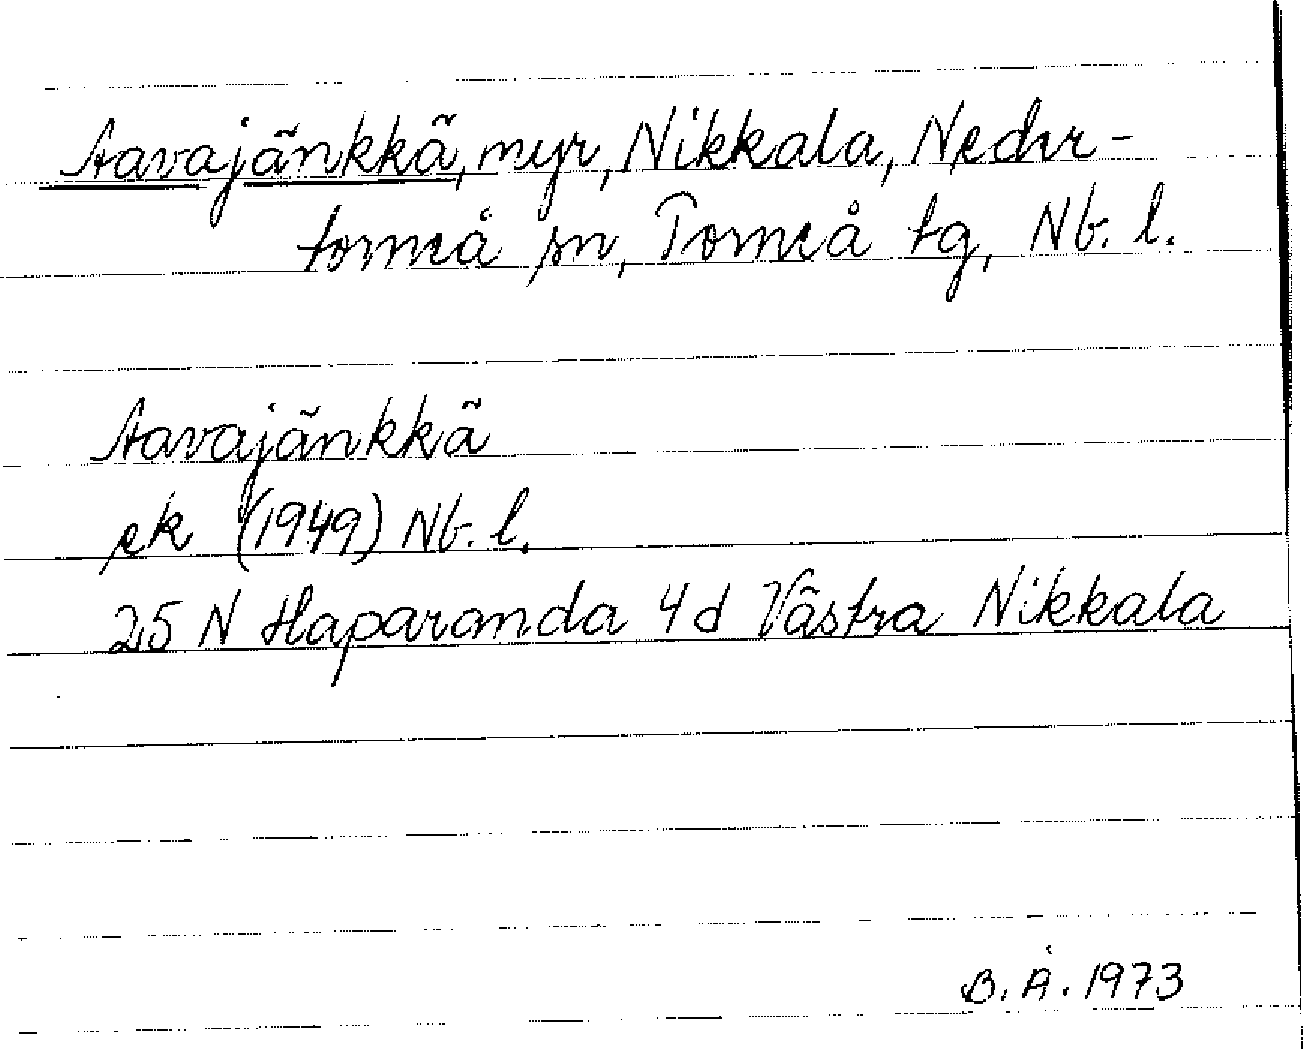 Aavajänkkä, myr, Nikkala, Neder-
torneå sn, Torneå tg, Nb. l.
Aavajänkkä
ek (1949) Nb. l.
25 N Haparanda 4 d Västra Nikkala
B. Å. 1973